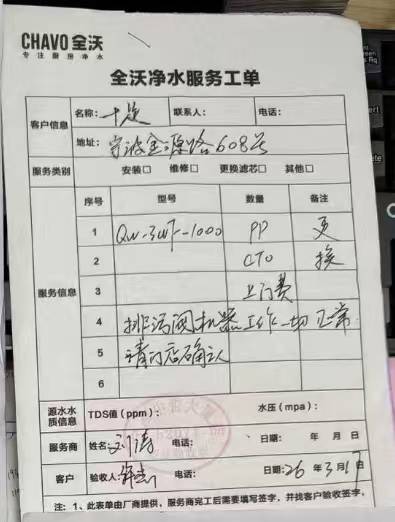 CHAVO 全沃
专注厨房净水
全沃净水服务工单
客户信息
名称： 联系人： 电话：
地址：宁波金源路608号
服务类别 安装□ 维修□ 更换滤芯□ 其他□
服务信息
序号 型号 数量 备注
1 QW-3W7-1000 PP 更
2 CTO 换
3 上门费
4 排污阀机器工作一切正常
5 请门店确认
6
源水水质信息 TDS值（ppm）： 水压（mpa）：
服务商 姓名：刘涛 电话： 日期： 年 月 日
客户 验收人： 电话： 日期：26年3月17
注：1、此表单由厂商提供，服务商完工后需要填写签字，并找客户验收签字，